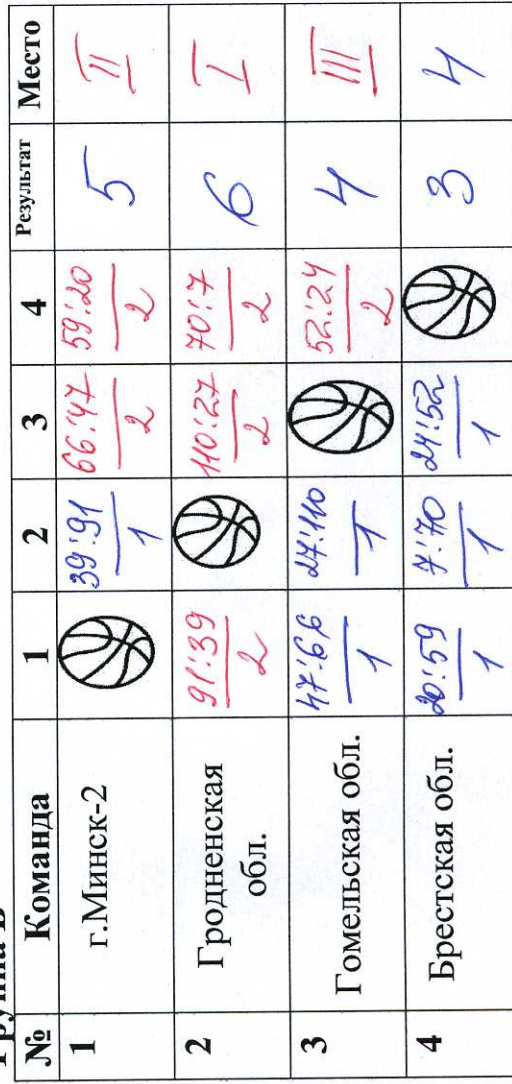 Группа
№ Команда 1 2 3 4 Результат Место
1 г.Минск-2 39:91 66:47 59:20 5 II
1 2 2
2 Гродненская обл. 91:39 110:27 70:7 6 I
2 2 2
3 Гомельская обл. 47:66 27:110 52:24 4 III
1 1 2
4 Брестская обл. 20:59 7:70 24:52 3 4
1 1 1